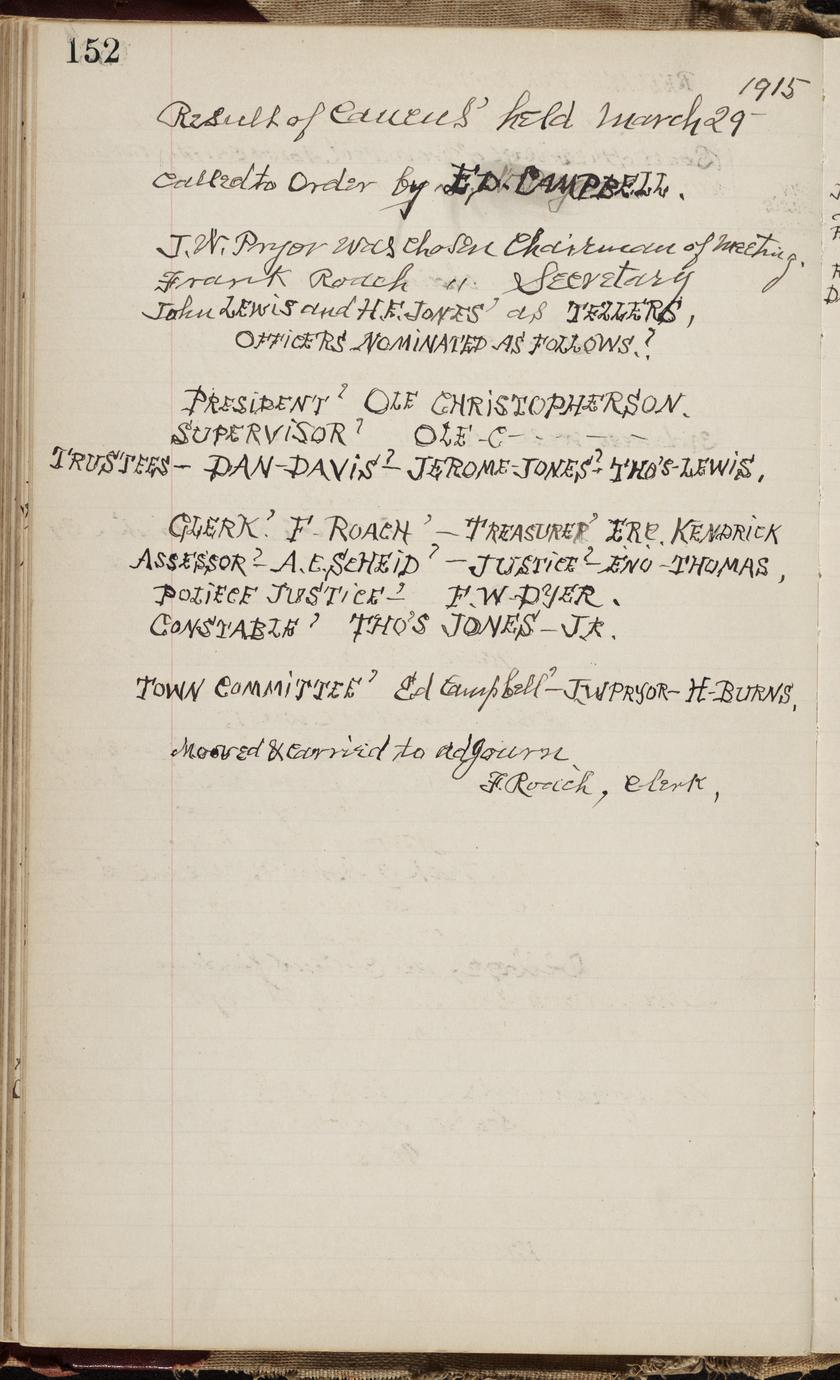 152
1915
Result of Caucus' held March 29-
Called to Order by E.D. CAMPBELL.
J.W. Pryor was chosen Chairman of Meeting.
Frank Roach " Secretary
John LEWIS and H.E. JONES' as TELLERS,
OFFICERS NOMINATED AS FOLLOWS.?
PRESIDENT? OLE CHRISTOPHERSON.
SUPERVISOR? OLE-C- - - - -
TRUSTEES- DAN-DAVIS?- JEROME-JONES?- THO'S-LEWIS,
CLERK? F. ROACH' - TREASURER' KENDRICK
ASSESSOR?- A.E. SCHEID? - JUSTICE?- ENO-THOMAS,
POLIECE JUSTICE-? F.W-DYER.
CONSTABLE? THO'S JONES-JR.
TOWN COMMITTEE? Ed Campbell?-J.W PRYOR- H-BURNS,
Mooved & carried to adjourn
F. Roach, Clerk,